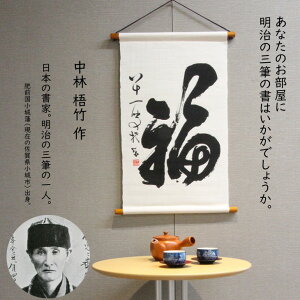 あなたのお部屋に
明治の三筆の書はいかがでしょうか。
中林 梧竹 作
日本の書家。明治の三筆の一人。
肥前国小城藩（現在の佐賀県小城市）出身。
福